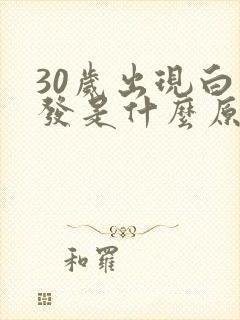 30歲出現白
發是什麼原
和羅